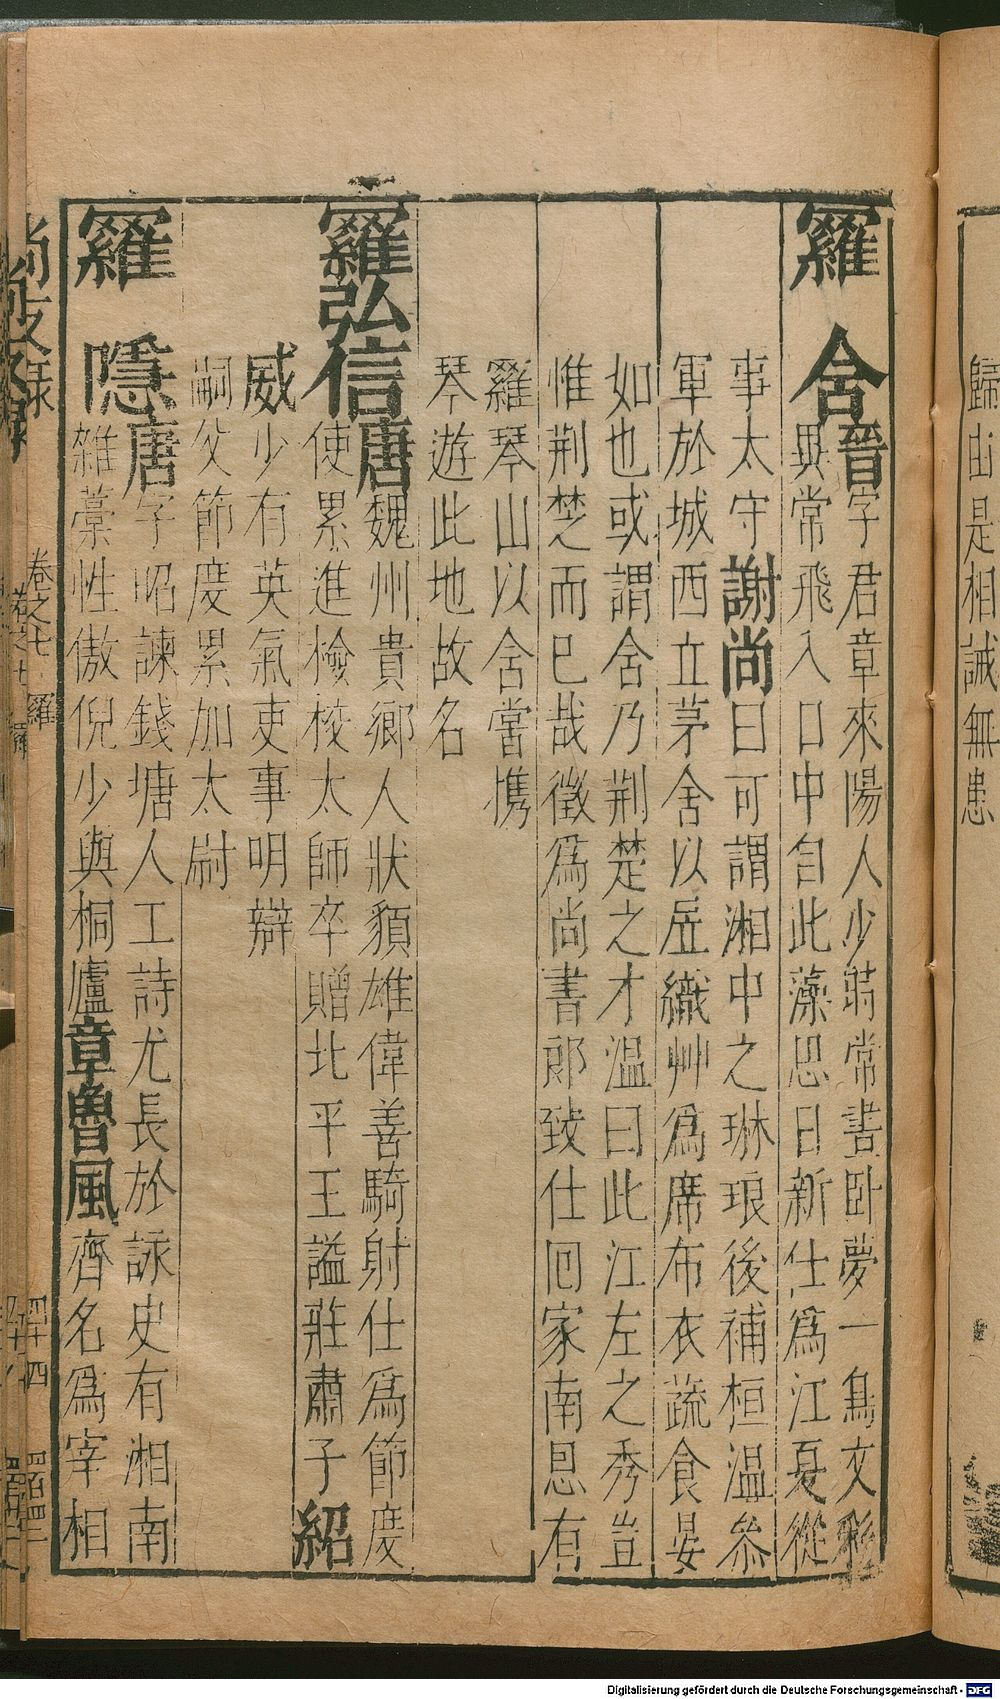 歸山是相誡無患
羅 含晉字君章來陽人少時常晝卧夢一鳥文彩
異常飛入口中自此藻思日新仕爲江夏從
事太守謝尚曰可謂湘中之琳琅後補桓溫叅
軍於城西立茅舍以居織艸爲席布衣蔬食晏
如也或謂含乃荆楚之才溫曰此江左之秀豈
惟荆楚而已哉徵爲尚書郎致仕回家南恩有
羅琴山以含嘗携
琴遊此地故名
羅弘信唐魏州貴鄉人狀貌雄偉善騎射仕爲節度
使累進檢校太師卒贈北平王謚莊肅子紹
威少有英氣吏事明辯
嗣父節度累加太尉
羅 隱唐字昭諫錢塘人工詩尤長於詠史有湘南
雜藁性傲倪少與桐廬章魯風齊名爲宰相
尚友録 卷之七 羅 四十四
Digitalisierung gefördert durch die Deutsche Forschungsgemeinschaft - DFG